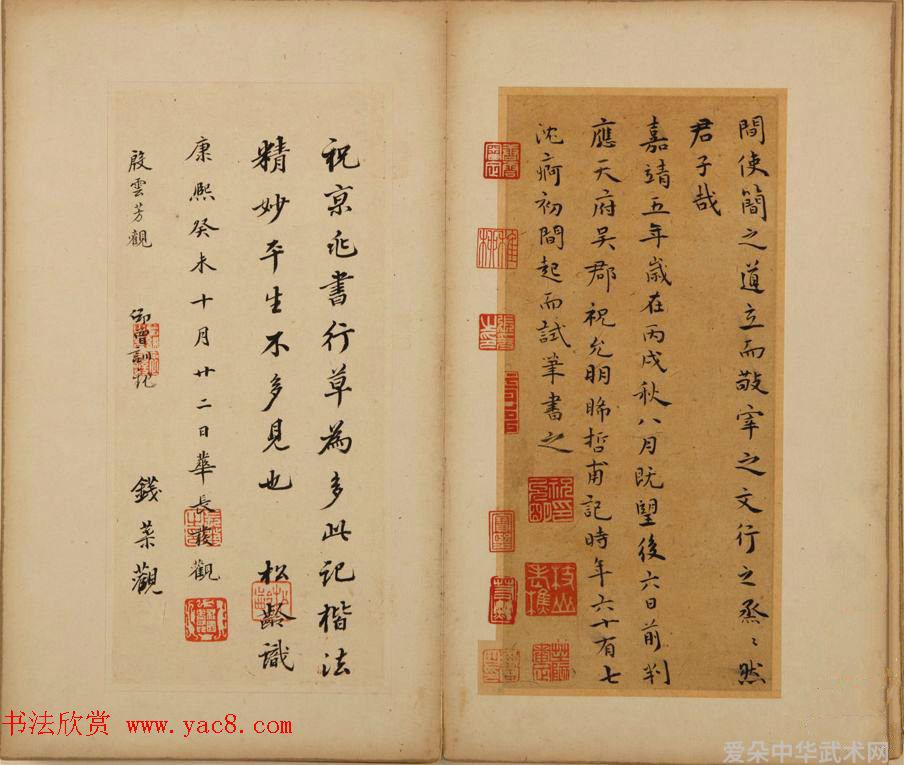 間使簡之道立而敬宰之文行之烝〻然
君子哉
嘉靖五年歲在丙戌秋八月既望後六日前判
應天府吳郡祝允明晞哲甫記時年六十有七
沈痾初間起而試筆書之
祝京兆書行草為多此記楷法
精妙平生不多見也 松齡識
康熙癸未十月廿二日華長發觀
殷雲芳觀 鄒曾訓記 錢菜觀
书法欣赏 www.yac8.com
爱朵中华武术网